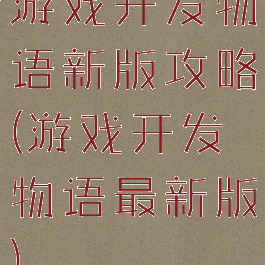 游戏开发物
语新版攻略
(游戏开发
物语最新版
)